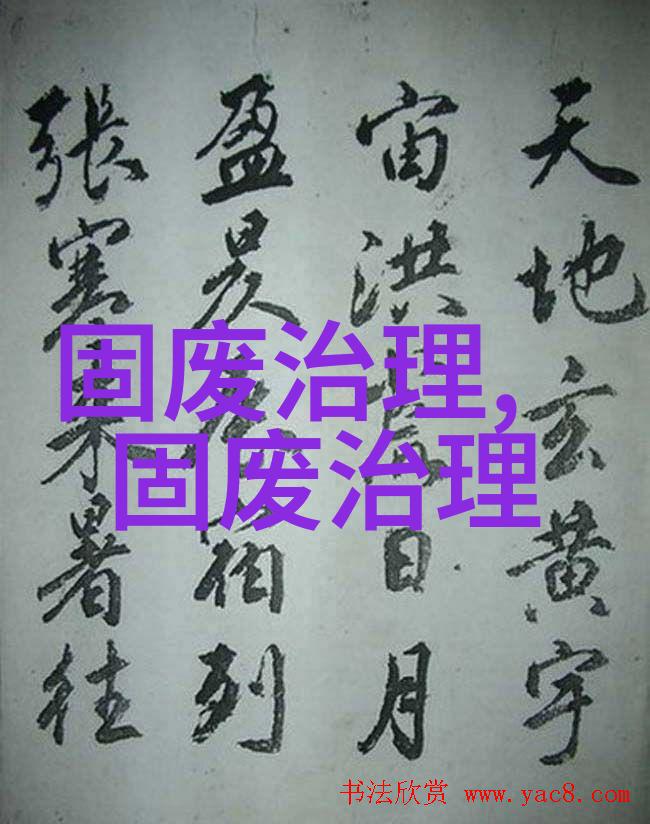 天地玄黄宇
宙洪日月
盈昃宿列
張寒来暑往
固废治理,
固废治理
书法欣赏 www.yac8.com